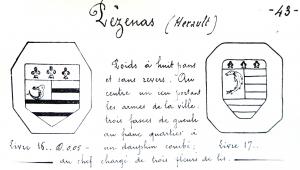 Pézenas (Herault) -43-
Poids à huit pans
et sans revers. Au
centre un écu portant
les armes de la ville:
trois fasces de gueule
au franc quartier à
un dauphin courbé;
Livre 16.. D.0,05- Livre 17..
au chef chargé de trois fleurs de lis.